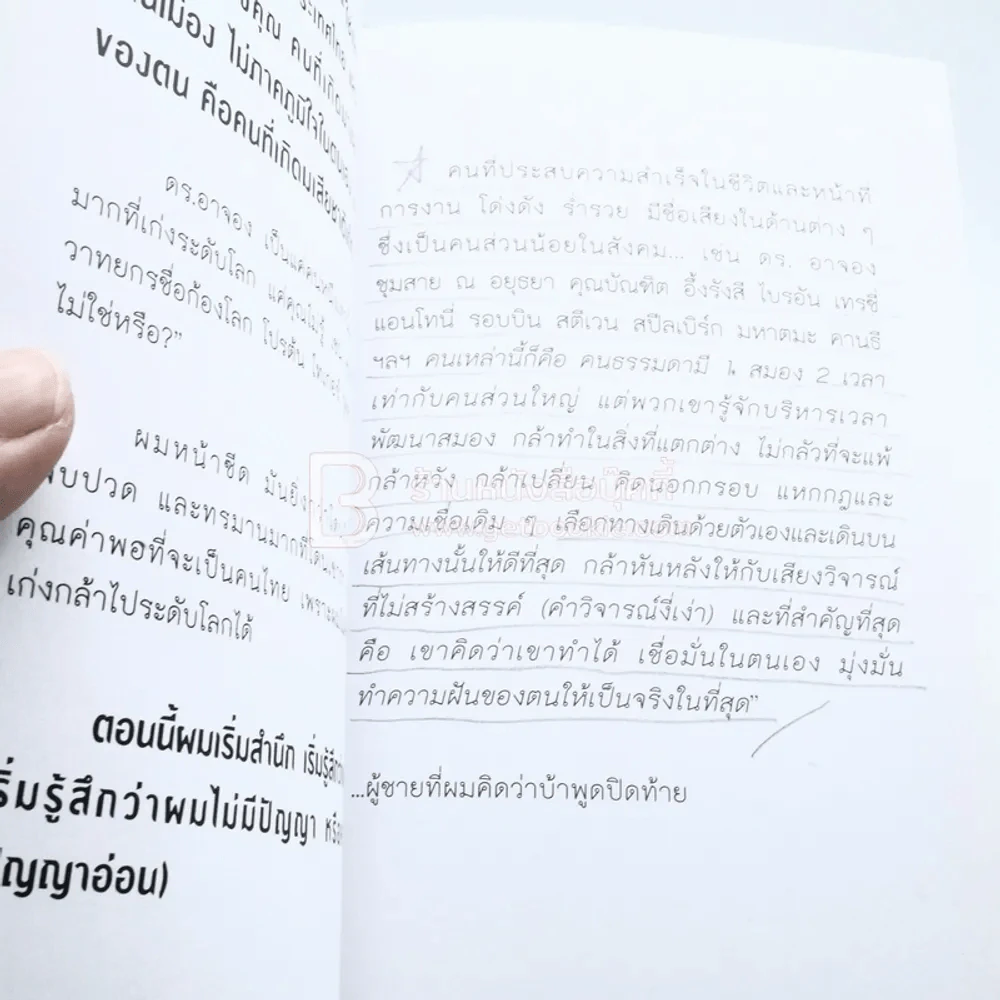 ของคุณ คนที่เกิด
ไม่ภาคภูมิใจในตนเอง
ของตน คือคนที่เกิดมาเสียชาติ
ดร.อาจอง เป็นแค่คน
มากที่เก่งระดับโลก แค่คุณไม่รู้
วาทยกรชื่อก้องโลก
ไม่ใช่หรือ?”
ผมหน้าซีด มันยิ่ง
และทรมานมากที่โดน
คุณค่าพอที่จะเป็นคนไทย เพราะ
เก่งกล้าไประดับโลกได้
ตอนนี้ผมเริ่มสำนึก เริ่มรู้สึก
เริ่มรู้สึกว่าผมไม่มีปัญญา หรือ
ปัญญาอ่อน)
คนที่ประสบความสำเร็จในชีวิตและหน้าที่
การงาน โด่งดัง ร่ำรวย มีชื่อเสียงในด้านต่าง ๆ
ซึ่งเป็นคนส่วนน้อยในสังคม... เช่น ดร. อาจอง
ชุมสาย ณ อยุธยา คุณบัณฑิต อึ้งรังสี ไบรอัน เทรซี่
แอนโทนี่ รอบบิน สตีเวน สปีลเบิร์ก มหาตมะ คานธี
ฯลฯ คนเหล่านี้ก็คือ คนธรรมดามี 1 สมอง 2 เวลา
เท่ากับคนส่วนใหญ่ แต่พวกเขารู้จักบริหารเวลา
พัฒนาสมอง กล้าทำในสิ่งที่แตกต่าง ไม่กลัวที่จะแพ้
กล้าหวัง กล้าเปลี่ยน คิดนอกกรอบ แหกกฎและ
ความเชื่อเดิม ๆ เลือกทางเดินด้วยตัวเองและเดินบน
เส้นทางนั้นให้ดีที่สุด กล้าหันหลังให้กับเสียงวิจารณ์
ที่ไม่สร้างสรรค์ (คำวิจารณ์งี่เง่า) และที่สำคัญที่สุด
คือ เขาคิดว่าเขาทำได้ เชื่อมั่นในตนเอง มุ่งมั่น
ทำความฝันของตนให้เป็นจริงในที่สุด”
...ผู้ชายที่ผมคิดว่าบ้าพูดปิดท้าย
ร้านหนังสือบุ๊คตี้